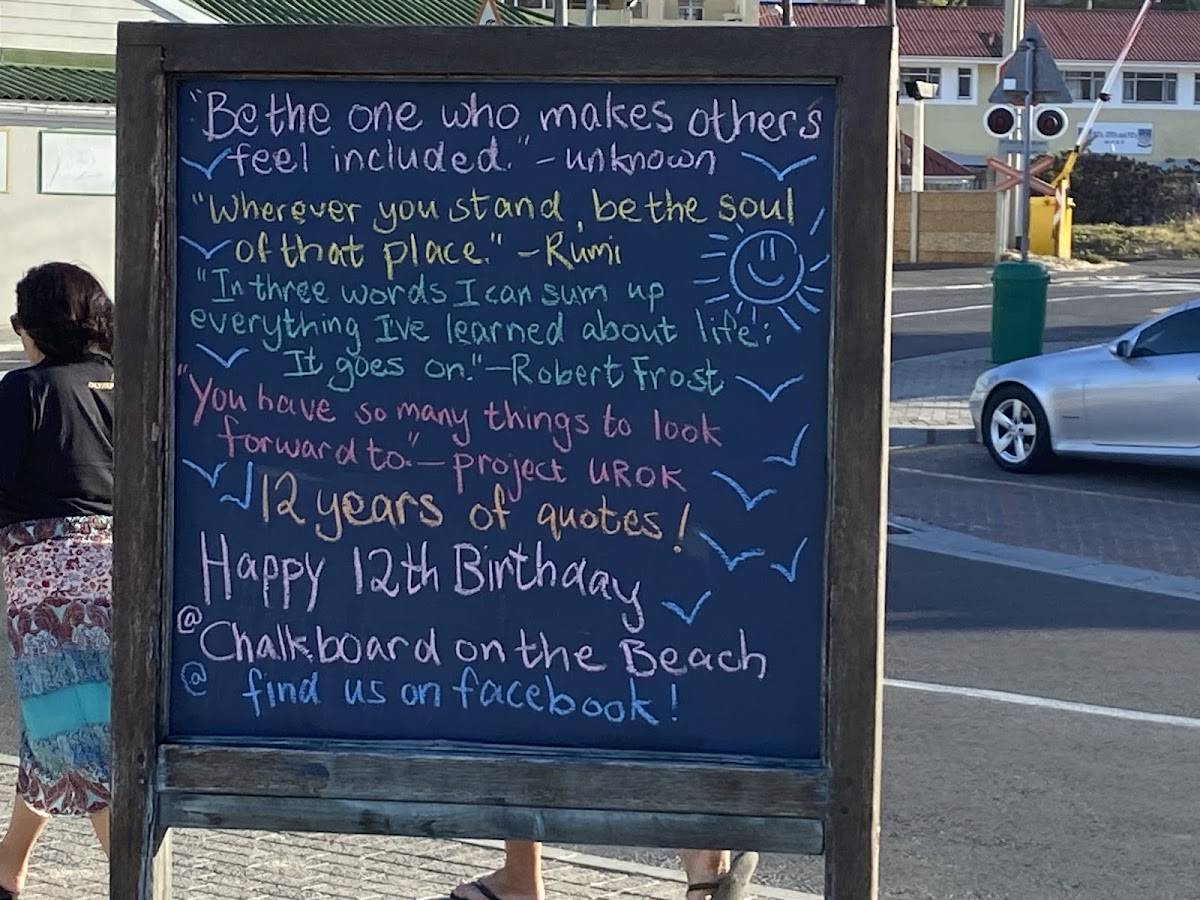 "Be the one who makes others
feel included." - unknown
"Wherever you stand, be the soul
of that place." - Rumi
"In three words I can sum up
everything I've learned about life:
It goes on." - Robert Frost
"You have so many things to look
forward to." - project UROK
12 years of quotes!
Happy 12th Birthday
@ Chalkboard on the Beach
@ find us on facebook!